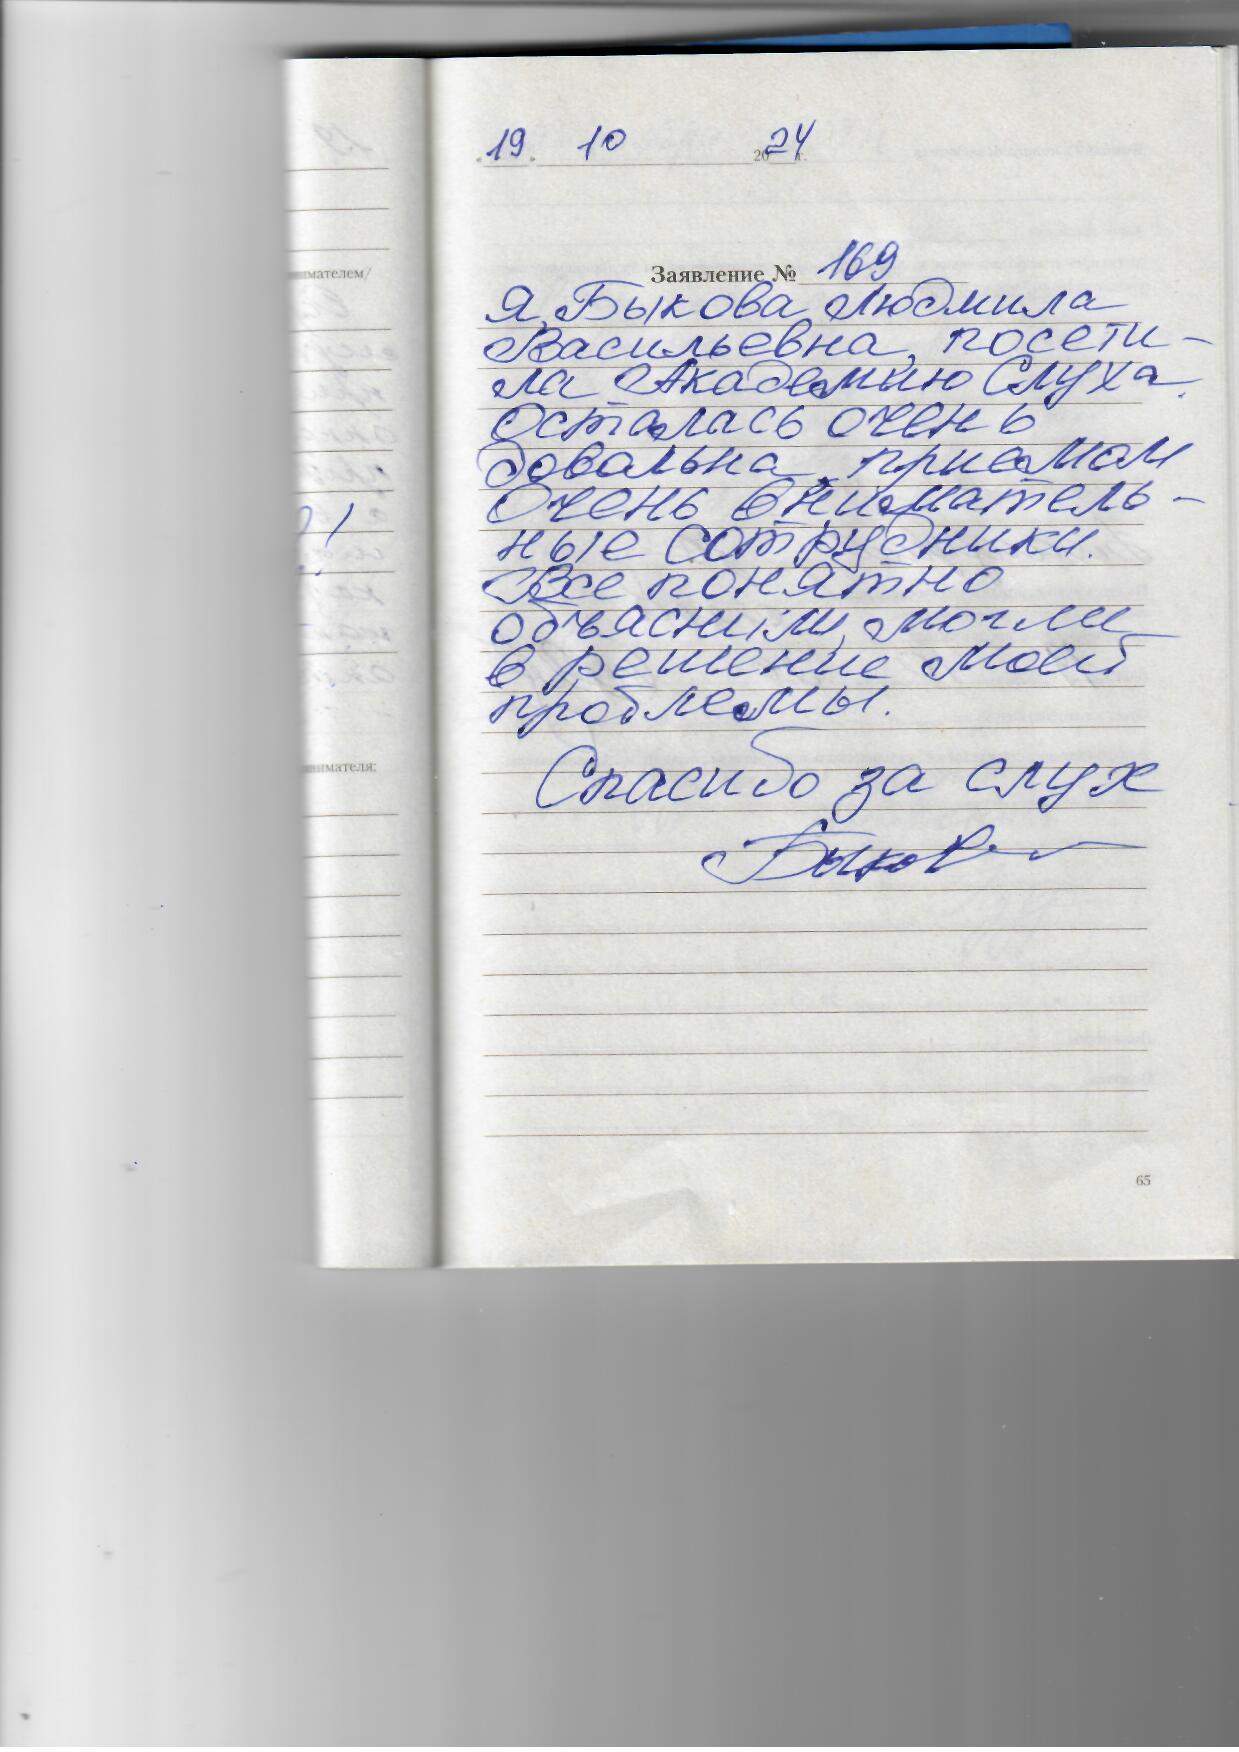 19. 10 2024 г.
Заявление № 169
Я, Быкова Людмила
Васильевна, посети-
ла Академию Слуха.
Осталась очень
довольна приемом
Очень вниматель-
ные сотрудники.
Все понятно
объяснили,
в решение моей
проблемы.
Спасибо за слух
Быкова
нимателем/
нимателя:
65